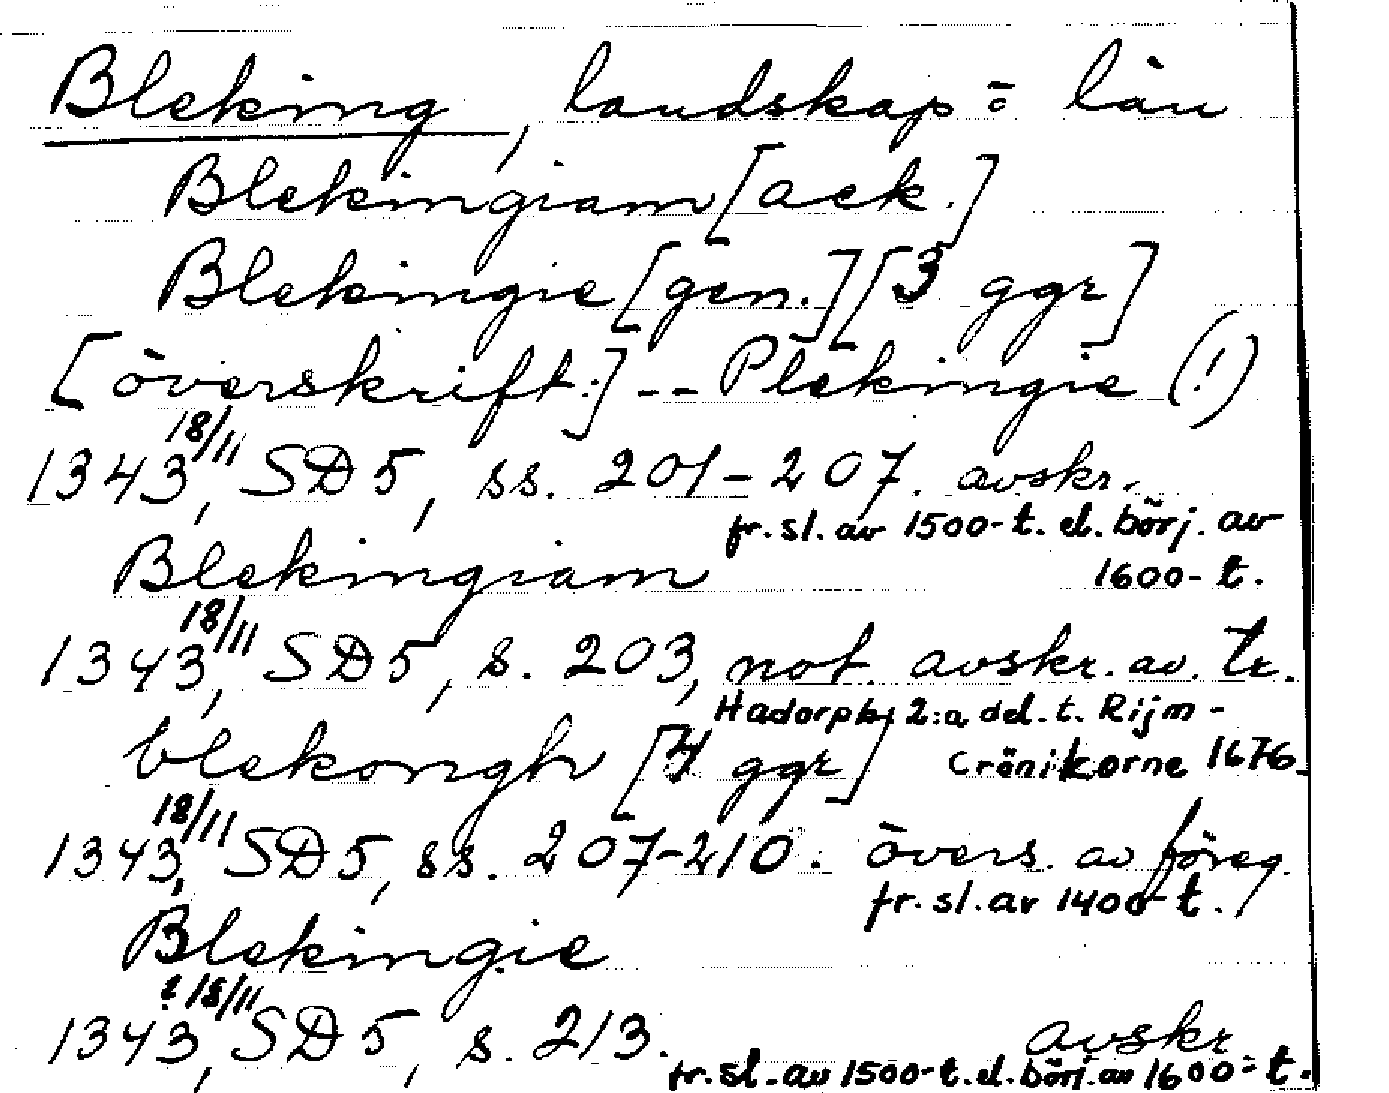 Bleking, landskap = län
Blekingiam [ack.]
Blekingie [gen.] [3 ggr]
[överskrift:] -- Plekingie (!)
1343 18/11, SD 5, ss. 201-207. avskr.
fr. sl. av 1500-t. el. börj. av
1600-t.
Blekingiam
1343 18/11, SD 5, s. 203, not. avskr. av tr.
Hadorph: 2:a del. t. Rijm-
Crönikorne 1676
blekongh [4 ggr]
1343 18/11, SD 5, ss. 207-210. övers. av föreg.
fr. sl. av 1400-t.
Blekingie
1343 ? 18/11, SD 5, s. 213. avskr
fr. sl. av 1500-t. el. börj. av 1600-t.